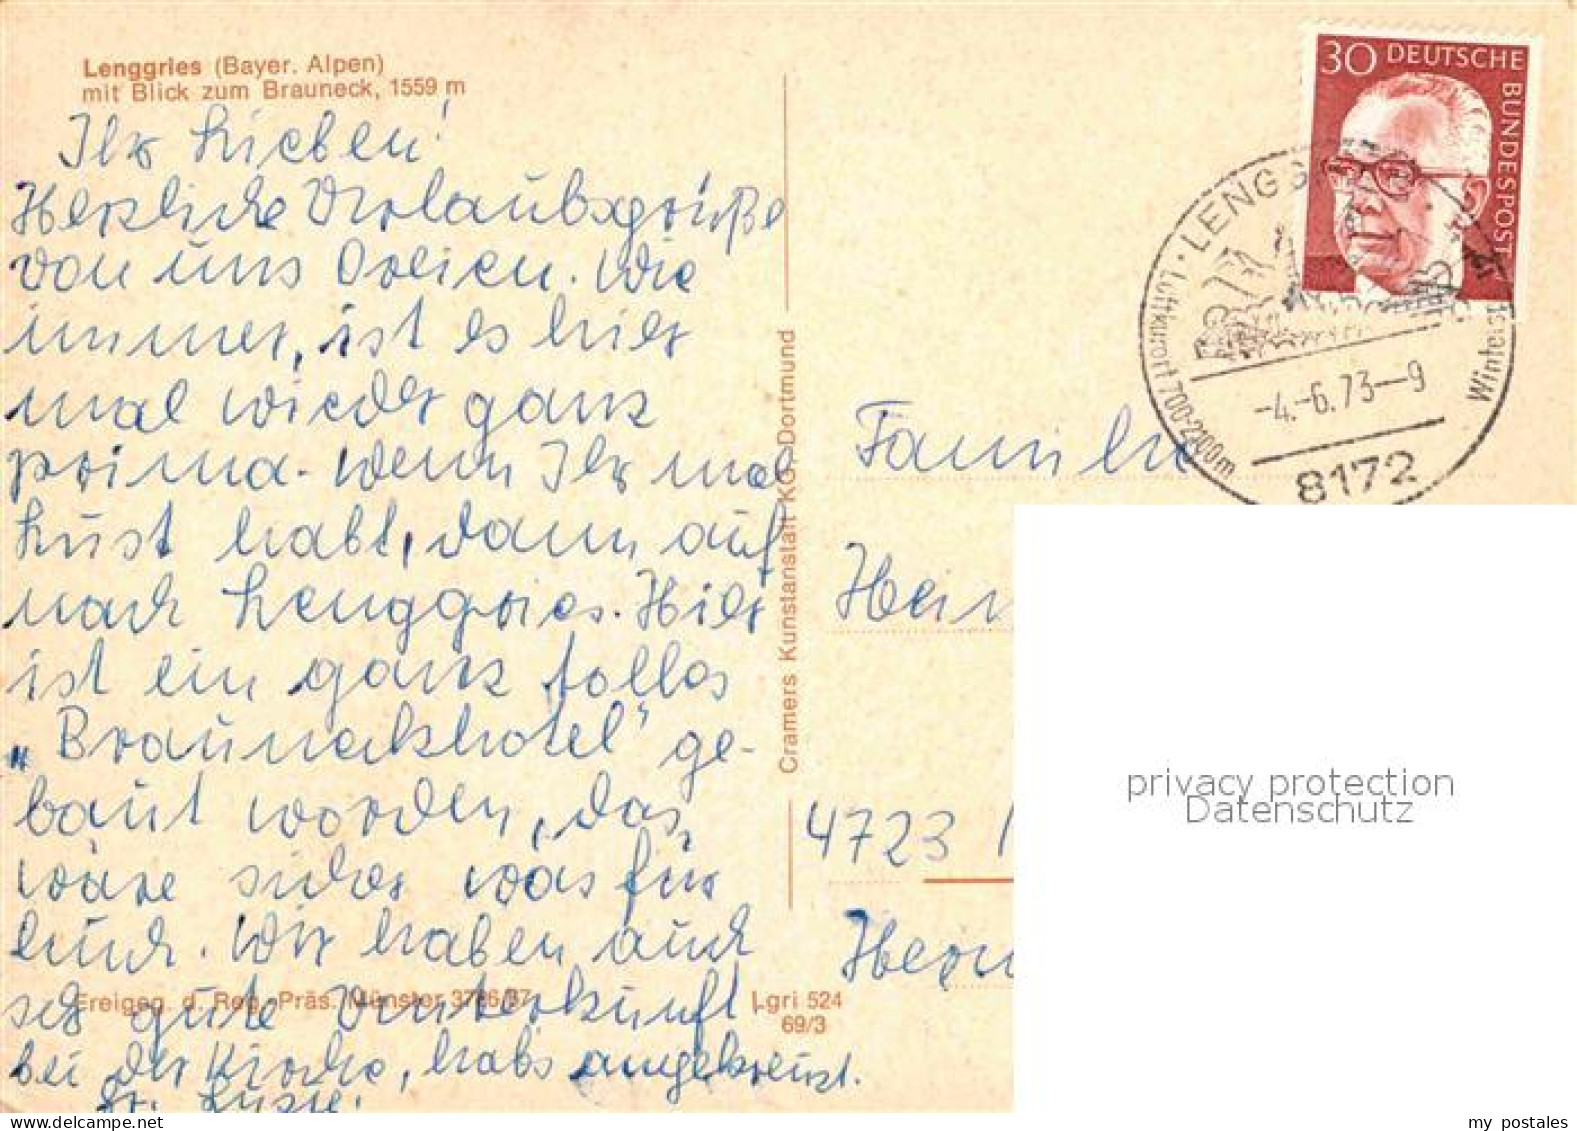 Lenggries (Bayer. Alpen)
mit Blick zum Brauneck, 1559 m
Ihr Lieben!
Herzliche Urlaubsgrüße
von uns Dreien. Wie
immer, ist es hier
mal wieder ganz
prima. Wenn Ihr mal
Lust habt, dann auf
nach Lenggries. Hier
ist ein ganz tolles
„Brauneckhotel" ge-
baut worden, das
wäre sicher was für
Euch. Wir haben auch
seh gute Unterkunft,
bei der Kirche, habs angekreuzt.
Freigeg. d. Reg. Präs. Münster
Lgri 524
69/3
Cramers Kunstanstalt KG, Dortmund
30 DEUTSCHE
BUNDESPOST
LENGG
Luftkurort 700-2100m
Winter
-4.-6.73-9
8172
Familie
Hein
4723
privacy protection
Datenschutz
my postales